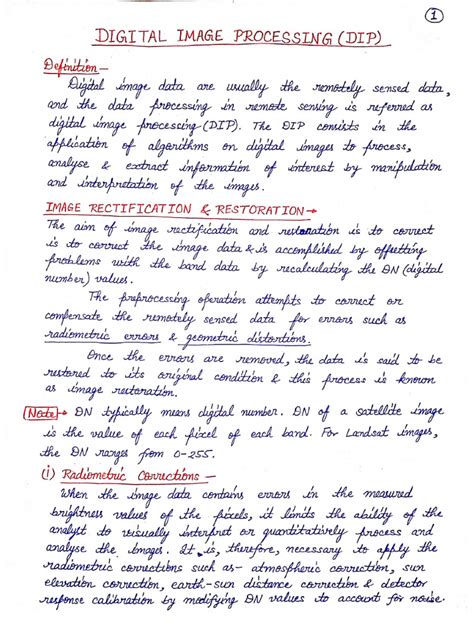 1
DIGITAL IMAGE PROCESSING (DIP)
Definition —
Digital image data are usually the remotely sensed data,
and the data processing in remote sensing is referred as
digital image processing (DIP). The DIP consists in the
application of algorithms on digital images to process,
analyse & extract information of interest by manipulation
and interpretation of the images.
IMAGE RECTIFICATION & RESTORATION →
The aim of image rectification and restoration is to correct
is to correct the image data & is accomplished by offsetting
problems with the band data by recalculating the DN (digital
number) values.
The preprocessing operation attempts to correct or
compensate the remotely sensed data for errors such as
radiometric errors & geometric distortions.
Once the errors are removed, the data is said to be
restored to its original condition & this process is known
as image restoration.
Note → DN typically means digital number. DN of a satellite image
is the value of each pixel of each band. For Landsat images,
the DN ranges from 0-255.
(i) Radiometric Corrections —
When the image data contains errors in the measured
brightness values of the pixels, it limits the ability of the
analyst to visually interpret or quantitatively process and
analyse the images. It is, therefore, necessary to apply the
radiometric corrections such as:- atmospheric correction, sun
elevation correction, earth-sun distance correction & detector
response calibration by modifying DN values to account for noise.